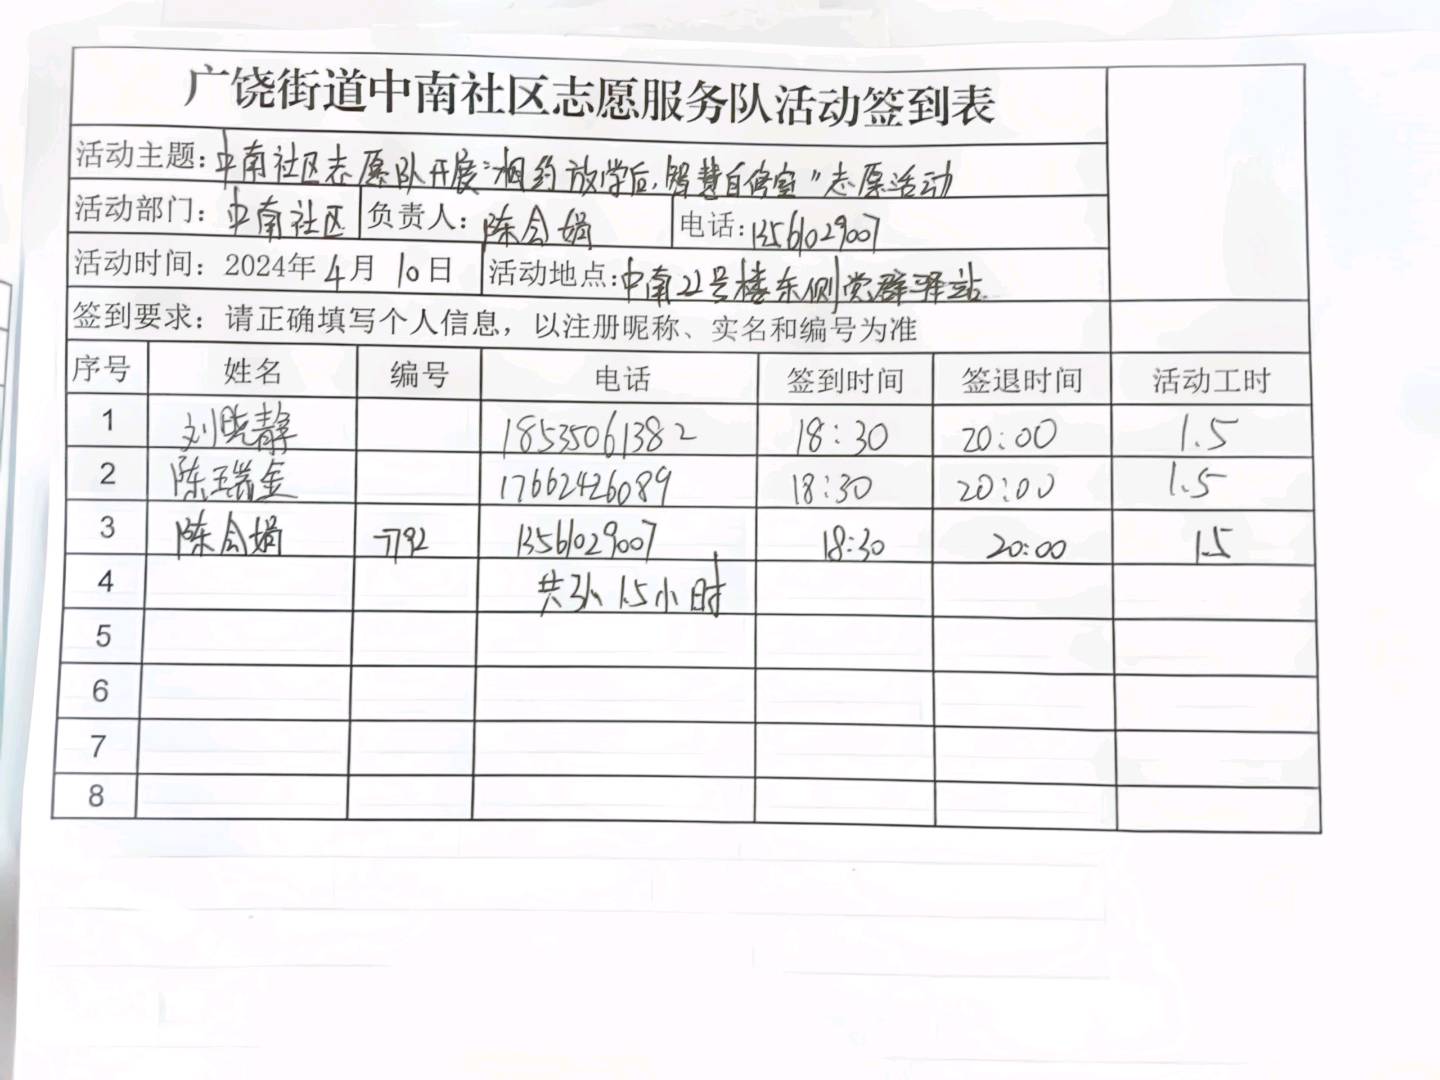 广饶街道中南社区志愿服务队活动签到表
活动主题：中南社区志愿队开展“相约放学后，智慧自修室”志愿活动
活动部门：中南社区 负责人：陈会娟 电话：13561029007
活动时间：2024年4月10日 活动地点：中南22号楼东侧党群驿站
签到要求：请正确填写个人信息，以注册昵称、实名和编号为准
序号 姓名 编号 电话 签到时间 签退时间 活动工时
1 刘晓静 18535061382 18:30 20:00 1.5
2 陈瑞金 17662426089 18:30 20:00 1.5
3 陈会娟 7792 13561029007 18:30 20:00 1.5
4 共3人 1.5小时
5
6
7
8